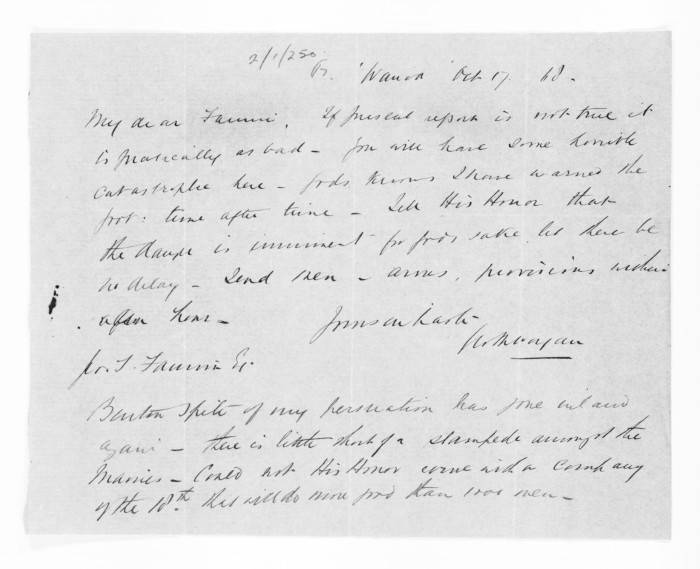 2/1/250
Pr. 'Wairoa' Oct 17. 68.
My dear Fannin. If present report is not true it
is practically as bad – you will have some horrible
catastrophe here – God knows I have warned the
Govt: time after time – Tell His Honor that
the danger is imminent for Gods sake let there be
no delay – Send men – arms, provisions within
hour –
Yours in haste
Geo. T. Fannin Esq.
Benton spite of my persuation has gone inland
again – there is little short of a stampede amongst the
Maories – Could not His Honor come with a company
of the 18th. that will do more good than 1000 men –